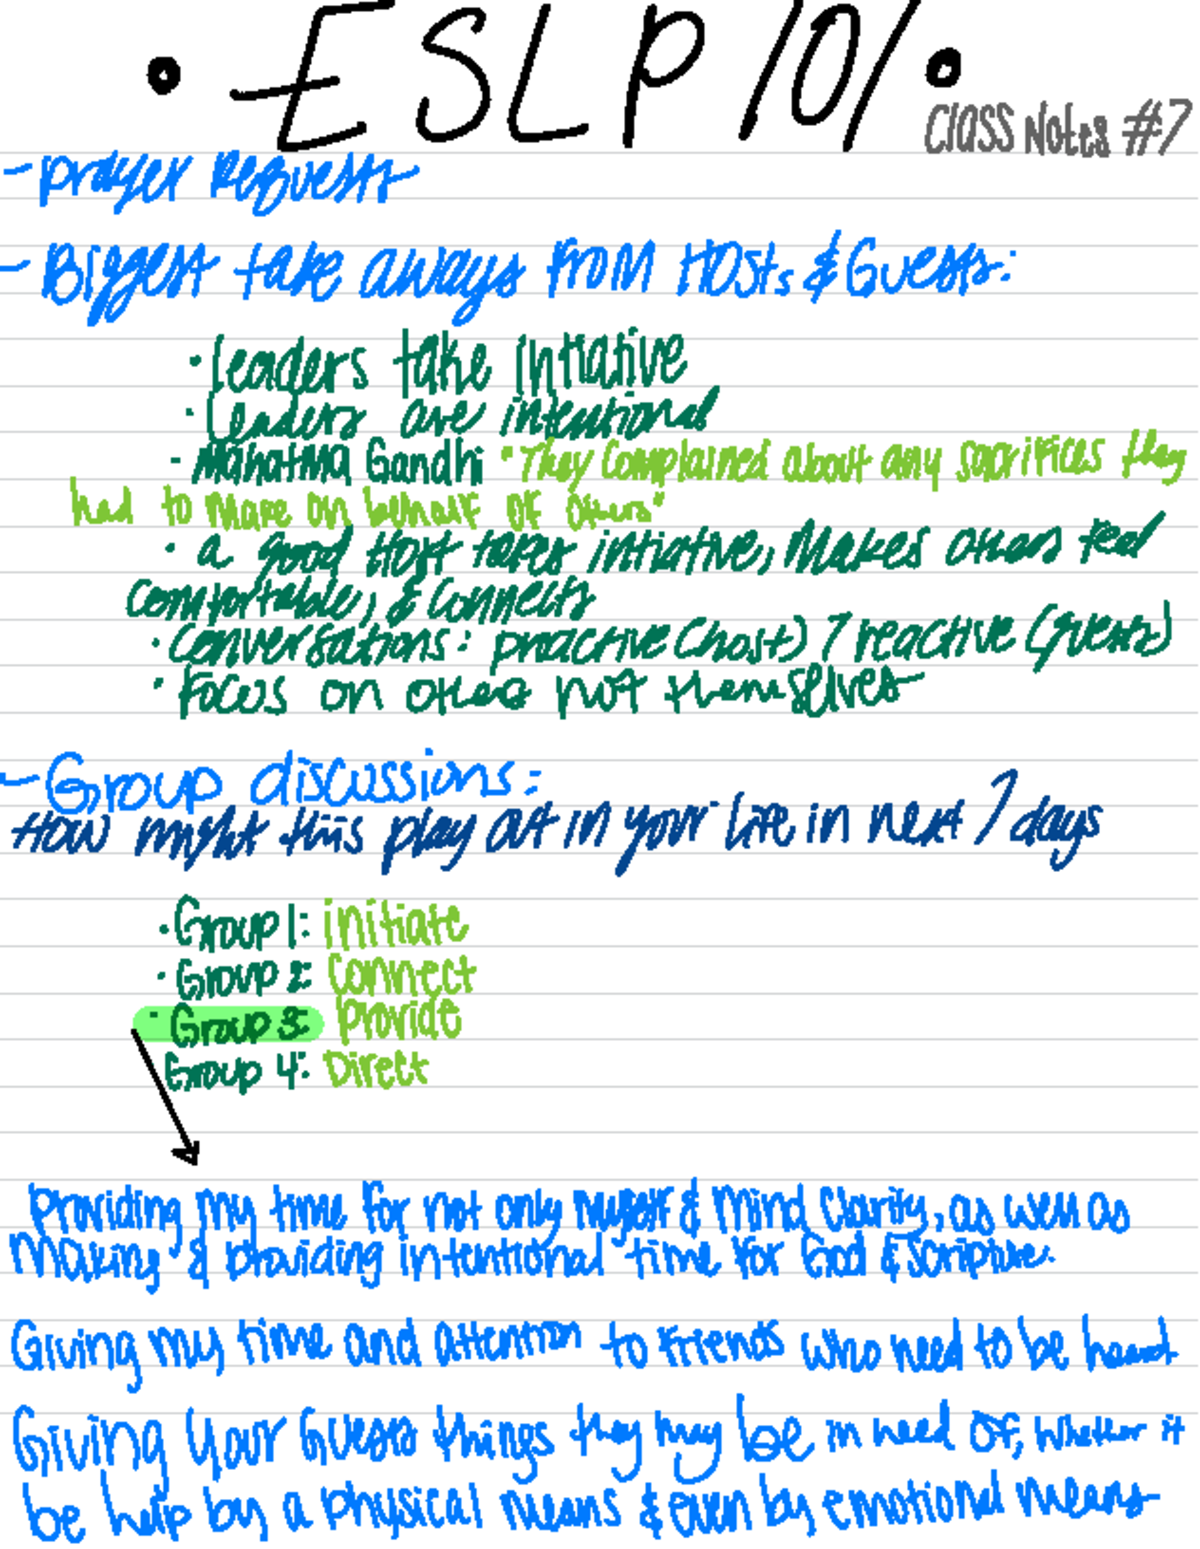 • ESLP 101 •
Class Notes #7
- Prayer Requests
- Biggest take aways from Hosts & Guests:
• Leaders take intiative
• Leaders are intentional
- Mahatma Gandhi "They complained about any sacrifices they
had to make on behalf of others"
• a good Host takes intiative, makes others feel
comfortable, & connects
• Conversations: proactive (host) / reactive (guests)
• Focus on others not themselves
- Group discussions:
How might this play out in your life in next 7 days
• Group 1: initiate
• Group 2: Connect
• Group 3: Provide
Group 4: Direct
Providing my time for not only myself & mind clarity, as well as
making & providing intentional time for God & scripture.
Giving my time and attention to friends who need to be heard
Giving your Guests things they may be in need of, whether it
be help by a physical means & even by emotional means